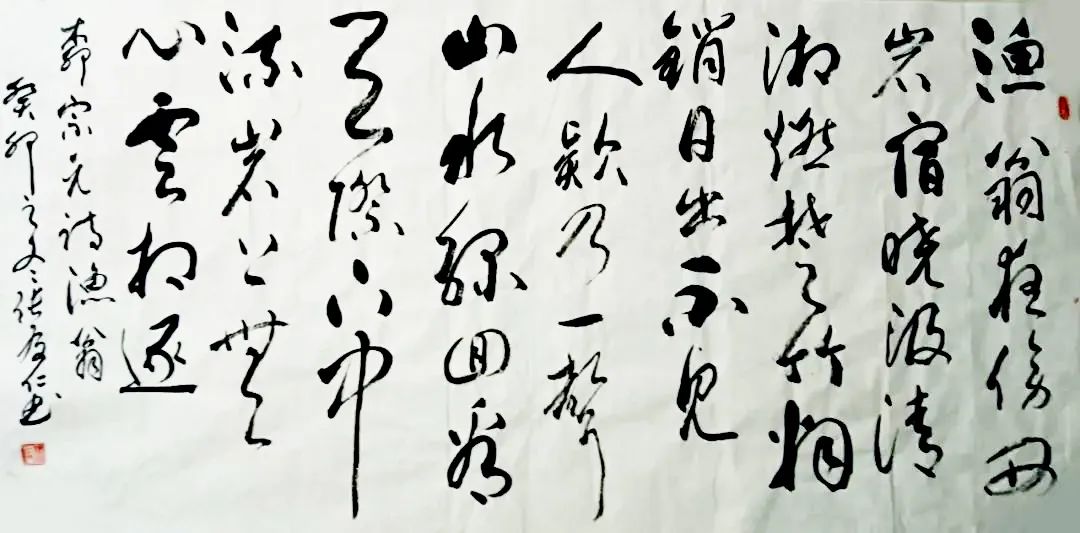 漁翁夜傍西
岩宿曉汲清
湘燃楚竹烟
銷日出不見
人欸乃一聲
山水綠回看
天際下中
流岩上無
心雲相逐
柳宗元詩漁翁
癸卯之冬張仁书